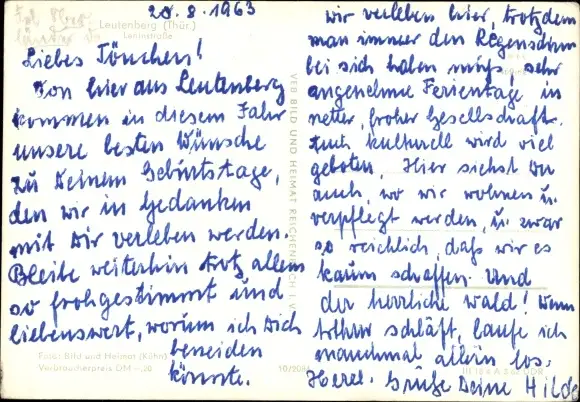 20.8.1963
Leutenberg (Thür.)
Leninstraße
Liebes Tönchen!
Von hier aus Leutenberg
kommen in diesem Jahr
unsere besten Wünsche
zu Deinem Geburtstage,
den wir in Gedanken
mit Dir verleben werden.
Bleibe weiterhin trotz allem
so frohgestimmt und
liebenswert, worum ich Dich
beneiden
könnte.
Foto: Bild und Heimat (Kühn)
Verbraucherpreis DM –,20
10/208
VEB BILD UND HEIMAT REICHENBACH I. V.
wir verleben hier, trotzdem
man immer den Regenschirm
bei sich haben muß, sehr
angenehme Ferientage in
netter, froher Gesellschaft.
Auch kulturell wird viel
geboten. Hier siehst Du
auch, wo wir wohnen u.
verpflegt werden, u. zwar
so reichlich, daß wir es
kaum schaffen. Und
der herrliche Wald! Wenn
schläft, laufe ich
manchmal allein los.
Herzl. Grüße Deine Hilde
DDR